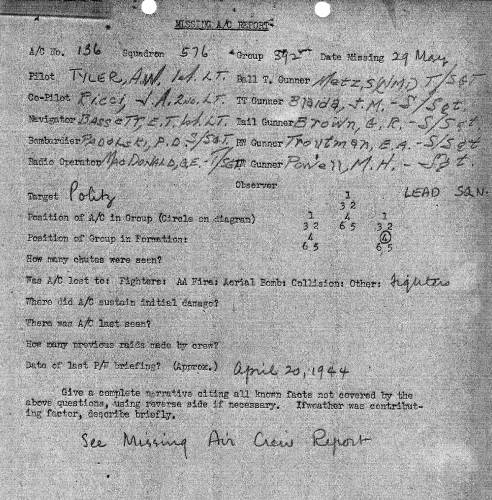 MISSING A/C REPORT
A/C No. 136 Squadron 576 Group 392nd Date Missing 29 May
Pilot TYLER, A.W. 1st. LT. Ball T. Gunner Metz, T/SGT
Co-Pilot Ricci, J.A. 2nd. LT. TT Gunner J.M. - S/Sgt.
Navigator BASSETT, E.T. 1st. LT. Tail Gunner Brown, G.R. - S/Sgt
Bombardier PADOLSKI, P.D. S/SGT. RW Gunner Troutman, E.A. - S/Sgt
Radio Operator MACDONALD, G.E. - T/SGT LW Gunner Powell, M.H. - Sgt.
Observer
Target Politz LEAD SQN.
1
3 2
Position of A/C in Group (Circle on diagram) 1 4 1
3 2 6 5 3 2
Position of Group in Formation: 4 4
6 5 6 5
How many chutes were seen?
Was A/C lost to: Fighters: AA Fire: Aerial Bomb: Collision: Other: Fighters
Where did A/C sustain initial damage?
There was A/C last seen?
How many previous raids made by crew?
Date of last P/W briefing? (Approx.) April 20, 1944
Give a complete narrative citing all known facts not covered by the
above questions, using reverse side if necessary. Ifweather was contribut-
ing factor, describe briefly.
See Missing Air Crew Report